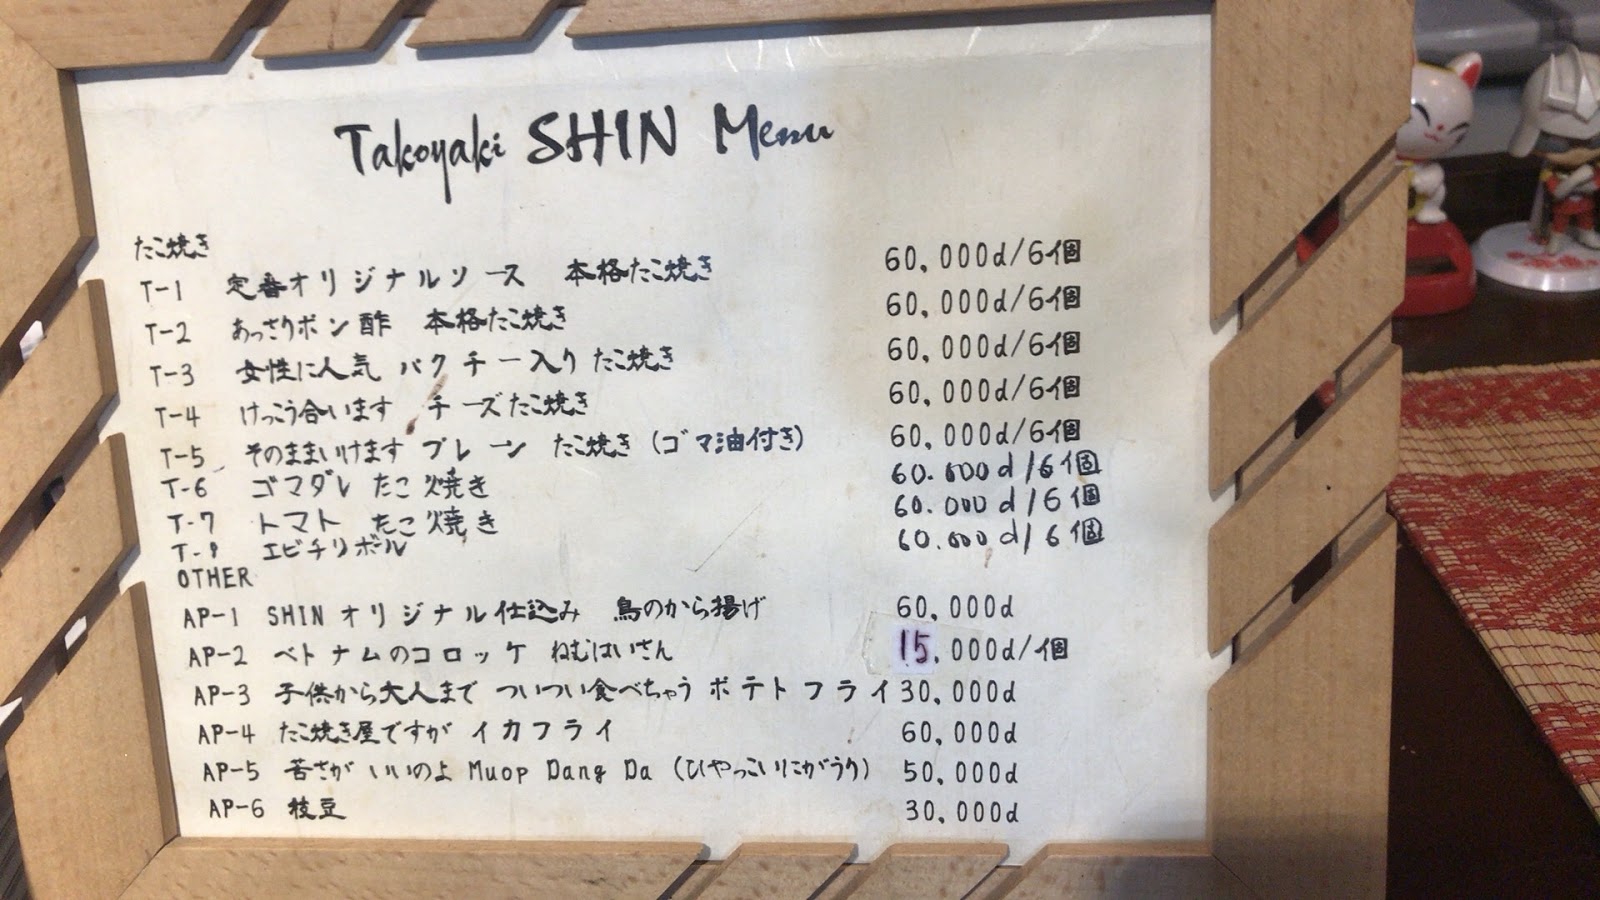 Takoyaki SHIN Menu
たこ焼き
T-1 定番オリジナルソース 本格たこ焼き 60,000d/6個
T-2 あっさりポン酢 本格たこ焼き 60,000d/6個
T-3 女性に人気 パクチー入り たこ焼き 60,000d/6個
T-4 けっこう合います チーズたこ焼き 60,000d/6個
T-5 そのままいけます プレーン たこ焼き (ゴマ油付き) 60,000d/6個
T-6 ゴマダレ たこ焼き 60.000d/6個
T-7 トマト たこ焼き 60.000d/6個
T-8 エビチリボール 60.000d/6個
OTHER
AP-1 SHINオリジナル仕込み 鳥のから揚げ 60,000d
AP-2 ベトナムのコロッケ ねむはいさん 15,000d/個
AP-3 子供から大人まで ついつい食べちゃう ポテトフライ 30,000d
AP-4 たこ焼き屋ですが イカフライ 60,000d
AP-5 苦さがいいのよ Muop Dang Da (ひやっこいにがうり) 50,000d
AP-6 枝豆 30,000d